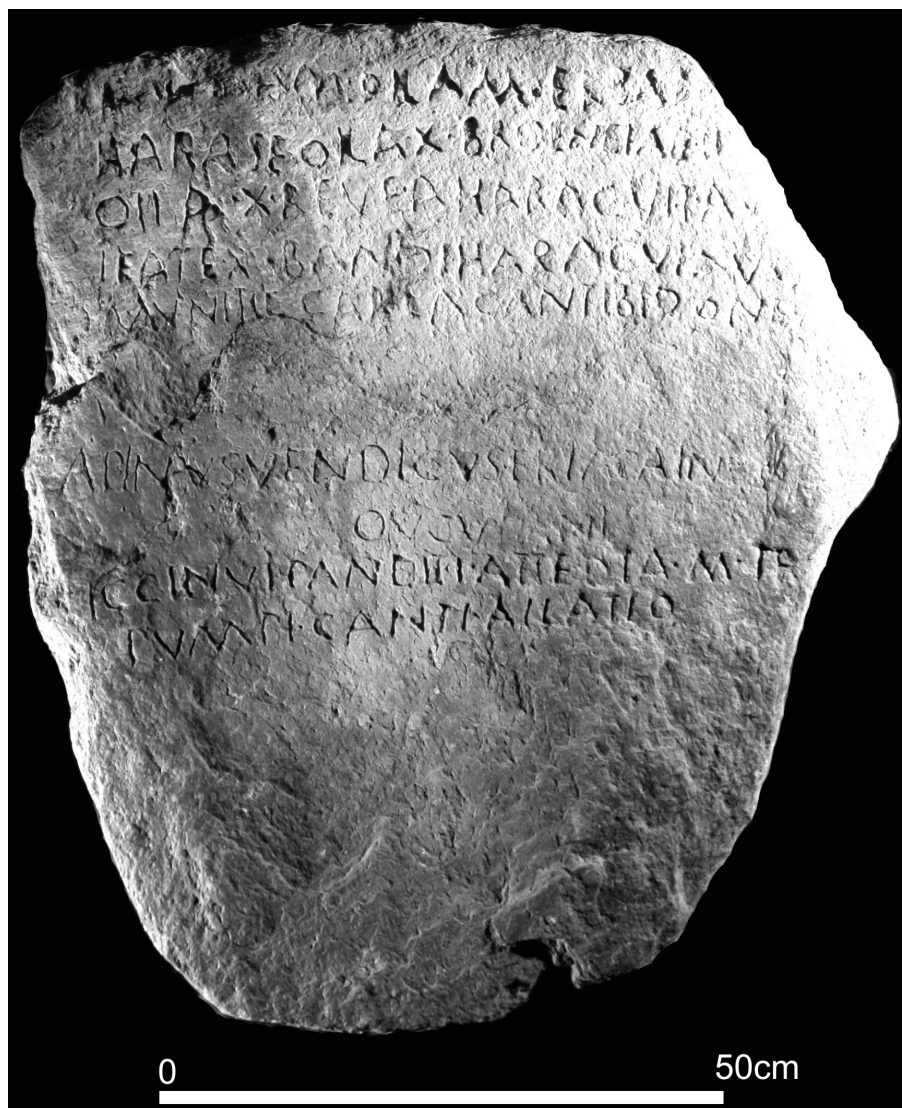 OILAM·ERBAM
HARASE OILA X·BROENEIAE
OILA·X·REVE AHARACVI TAV
IEATE X·BANDI HARACVI AV
MVNITIE CARIA CANTIBIDONE
APINVS VENDICVS ERIACAINV
ICCINVI PANDITI·ATTEDIA·M·TR
PVMPI·CANTI AILATIO
0 50cm